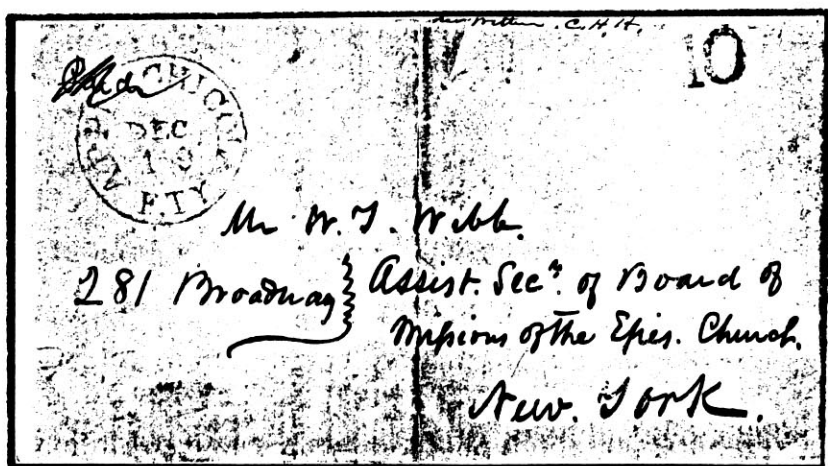 C. H. H.
10
APALACHICOLA
DEC
19
F.TY
Mr W. T. Webb.
281 Broadway } Assist. Secy. of Board of
Missions of the Epis. Church.
New. York.